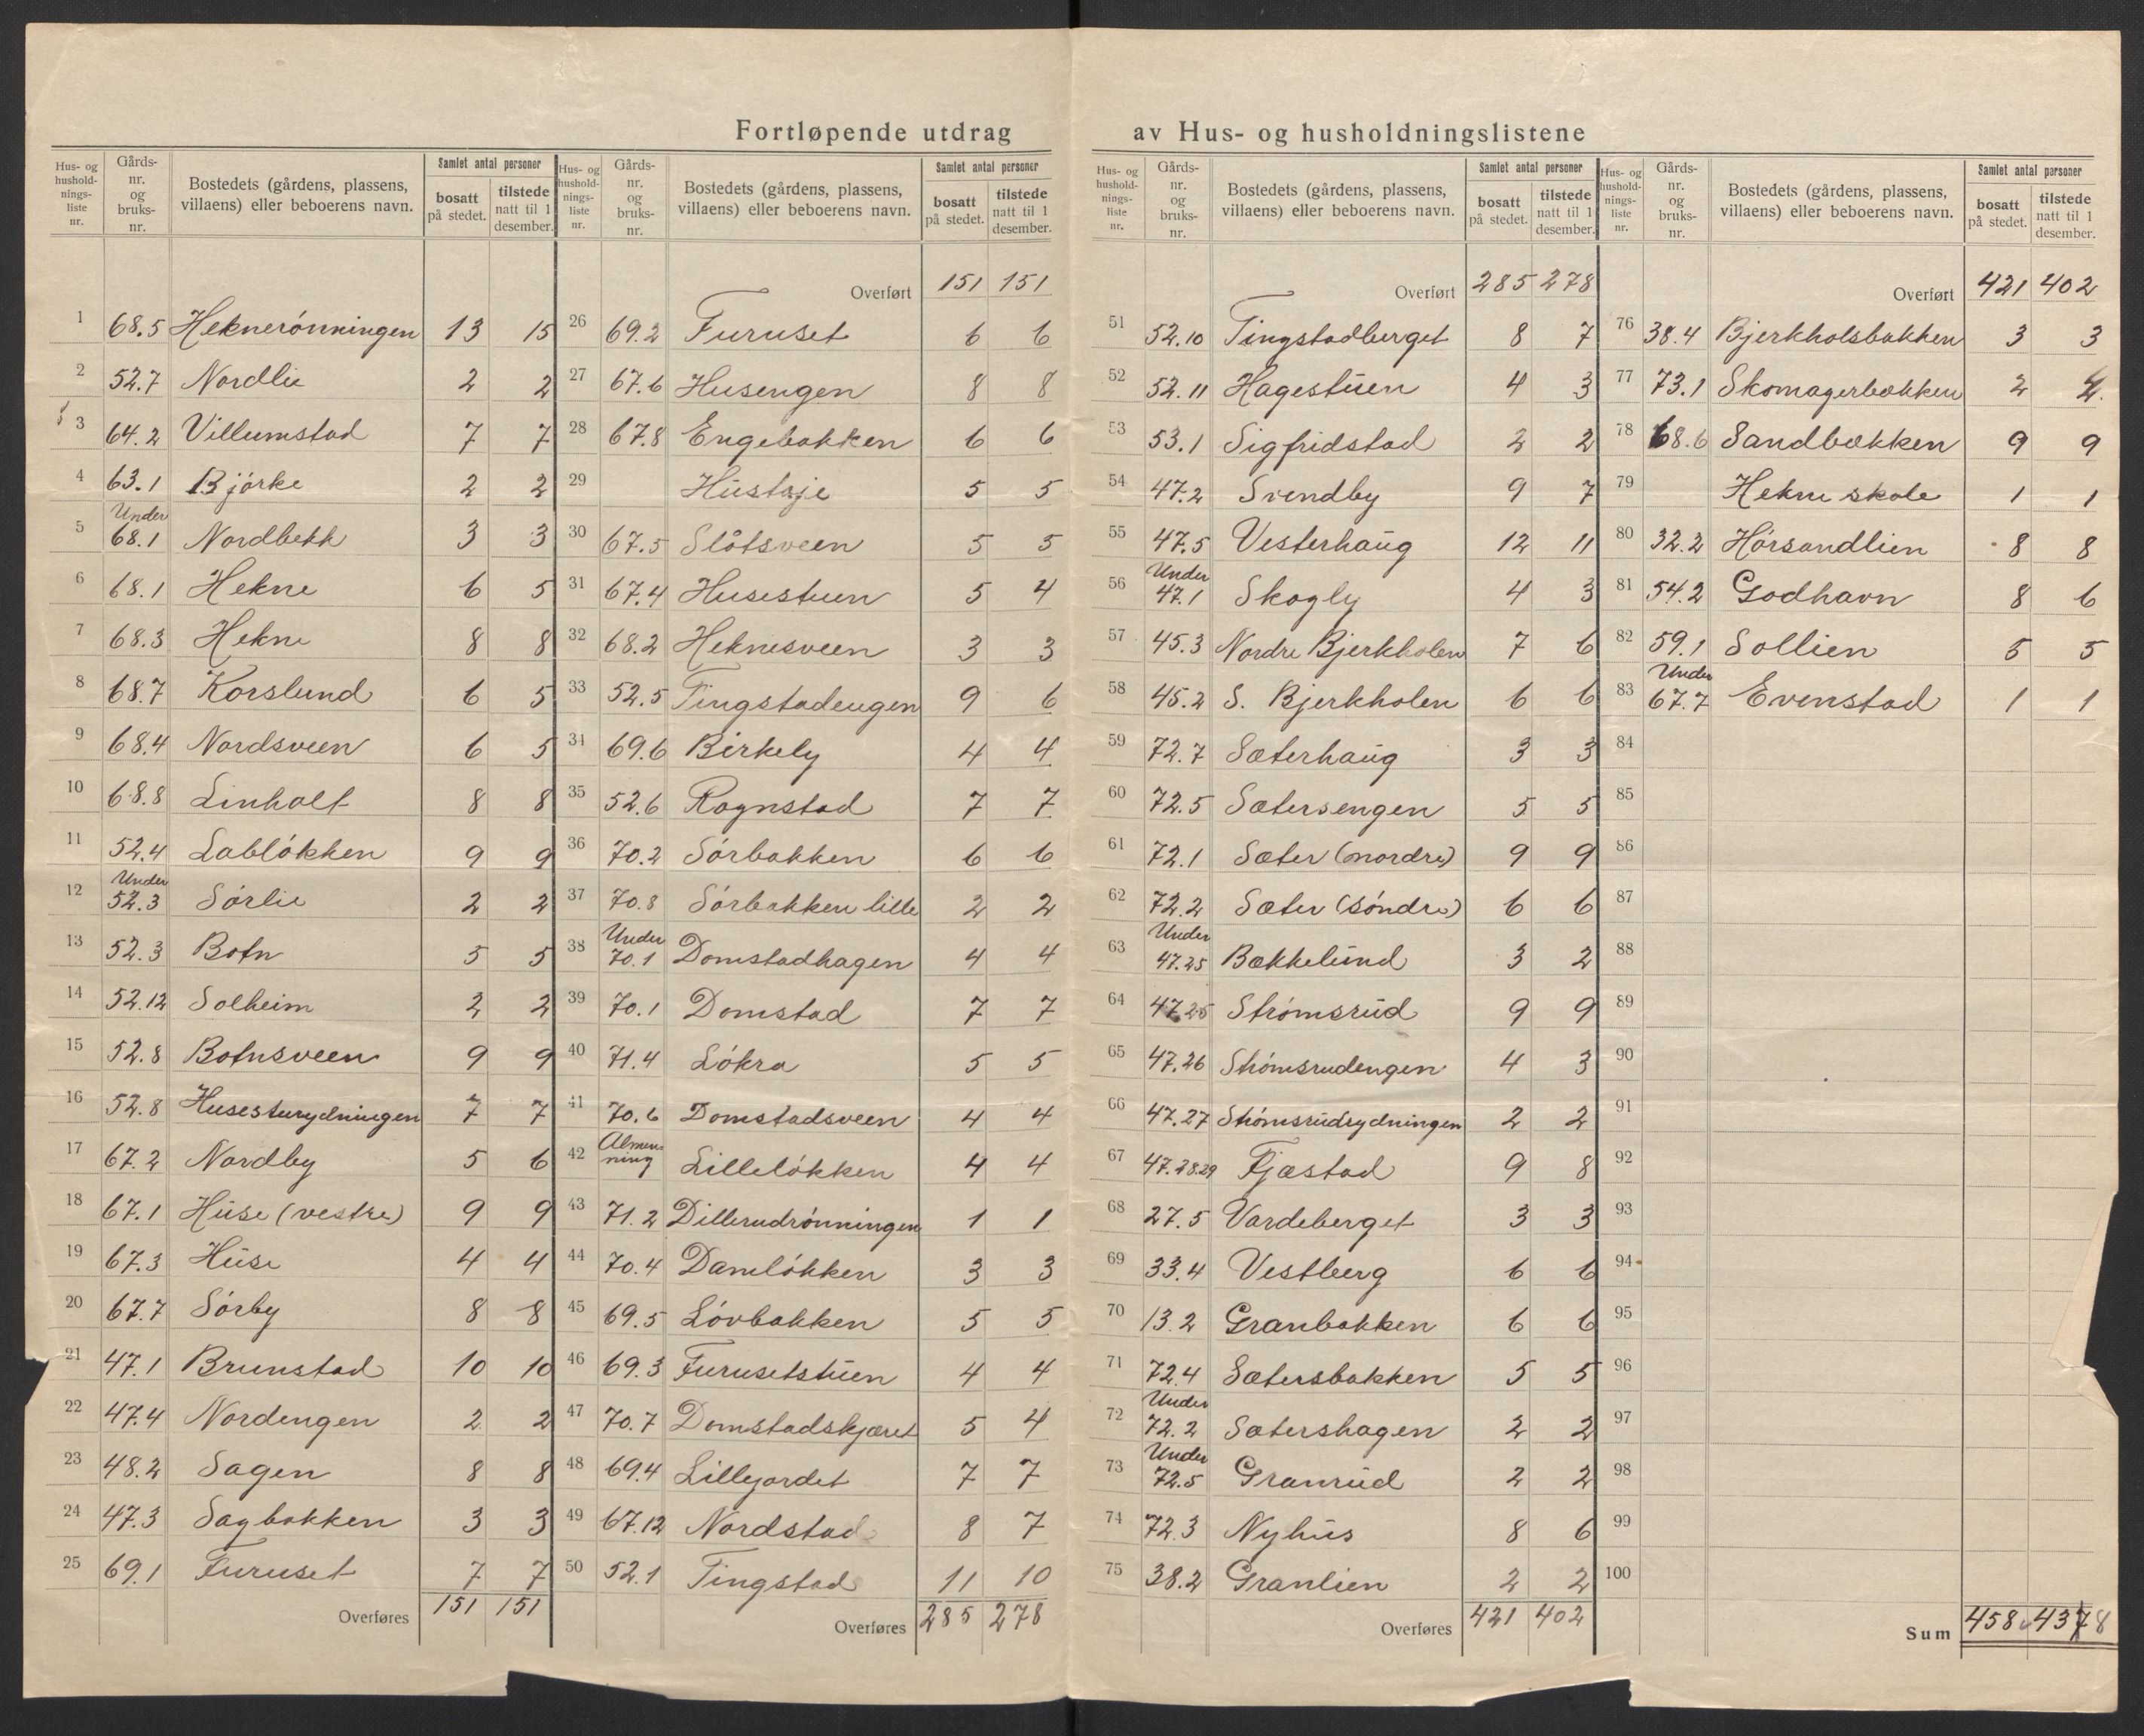 Fortløpende utdrag av Hus- og husholdningslistene
Hus- og husholdnings-liste nr. | Gårds-nr. og bruks-nr. | Bostedets (gårdens, plassens, villaens) eller beboerens navn. | Samlet antal personer | bosatt på stedet. | tilstede natt til 1 desember.
1 68.5 Heknerönningen 13 15
2 52.7 Nordlie 2 2
3 64.2 Villumstad 7 7
4 63.1 Bjørke 2 2
5 Under 68.1 Nordbekk 3 3
6 68.1 Hekne 6 5
7 68.3 Hekne 8 8
8 68.7 Korslund 6 5
9 68.4 Nordsveen 6 5
10 68.8 Linholt 8 8
11 52.4 Labløkken 9 9
12 Under 52.3 Sørlie 2 2
13 52.3 Botn 5 5
14 52.12 Solheim 2 2
15 52.8 Botnsveen 9 9
16 52.8 Husesturydningen 7 7
17 67.2 Nordby 5 6
18 67.1 Huse (vestre) 9 9
19 67.3 Huse 4 4
20 67.7 Sørby 8 8
21 47.1 Brunstad 10 10
22 47.4 Nordengen 2 2
23 48.2 Sagen 8 8
24 47.3 Sagbakken 3 3
25 69.1 Furuset 7 7
Overføres 151 151
Hus- og husholdnings-liste nr. | Gårds-nr. og bruks-nr. | Bostedets (gårdens, plassens, villaens) eller beboerens navn. | Samlet antal personer | bosatt på stedet. | tilstede natt til 1 desember.
Overført 151 151
26 69.2 Furuset 6 6
27 67.6 Husengen 8 8
28 67.8 Engebakken 6 6
29 Hustøje 5 5
30 67.5 Slåtsveen 5 5
31 67.4 Husestuen 5 4
32 68.2 Heknesveen 3 3
33 52.5 Tingstadengen 9 6
34 69.6 Birkely 4 4
35 52.6 Rognstad 7 7
36 70.2 Sørbakken 6 6
37 70.8 Sørbakken lille 2 2
38 Under 70.1 Domstadhagen 4 4
39 70.1 Domstad 7 7
40 71.4 Løkra 5 5
41 70.6 Domstadsveen 4 4
42 Almenning Lilleløkken 4 4
43 71.2 Dillerudrønningen 1 1
44 70.4 Damløkken 3 3
45 69.5 Løvbakken 5 5
46 69.3 Furusetstuen 4 4
47 70.7 Domstadskjæret 5 4
48 69.4 Lillejordet 7 7
49 67.12 Nordstad 8 7
50 52.1 Tingstad 11 10
Overføres 285 278
Hus- og husholdnings-liste nr. | Gårds-nr. og bruks-nr. | Bostedets (gårdens, plassens, villaens) eller beboerens navn. | Samlet antal personer | bosatt på stedet. | tilstede natt til 1 desember.
Overført 285 278
51 52.10 Tingstadberget 8 7
52 52.11 Hagestuen 4 3
53 53.1 Sigfridstad 2 2
54 47.2 Svendby 9 7
55 47.5 Vesterhaug 12 11
56 Under 47.1 Skogly 4 3
57 45.3 Nordre Bjerkholen 7 6
58 45.2 S. Bjerkholen 6 6
59 72.7 Sæterhaug 3 3
60 72.5 Sætersengen 5 5
61 72.1 Sæter (nordre) 9 9
62 72.2 Sæter (søndre) 6 6
63 Under 47.25 Bækkelund 3 2
64 47.25 Strømsrud 9 9
65 47.26 Strømsrudengen 4 3
66 47.27 Strømsrudrydningen 2 2
67 47.28.29 Fjæstad 9 8
68 27.5 Vardeberget 3 3
69 33.4 Vestberg 6 6
70 13.2 Granbakken 6 6
71 72.4 Sætersbakken 5 5
72 Under 72.2 Sætershagen 2 2
73 Under 72.5 Granrud 2 2
74 72.3 Nyhus 8 6
75 38.2 Granlien 2 2
Overføres 421 402
Hus- og husholdnings-liste nr. | Gårds-nr. og bruks-nr. | Bostedets (gårdens, plassens, villaens) eller beboerens navn. | Samlet antal personer | bosatt på stedet. | tilstede natt til 1 desember.
Overført 421 402
76 38.4 Bjerkholsbakken 3 3
77 73.1 Skomagerbakken 2
78 68.6 Sandbækken 9 9
79 Hekne skole 1 1
80 32.2 Hørsandlien 8 8
81 54.2 Godhavn 8 6
82 59.1 Sollien 5 5
83 Under 67.7 Evenstad 1 1
84
85
86
87
88
89
90
91
92
93
94
95
96
97
98
99
100
Sum 458 4378